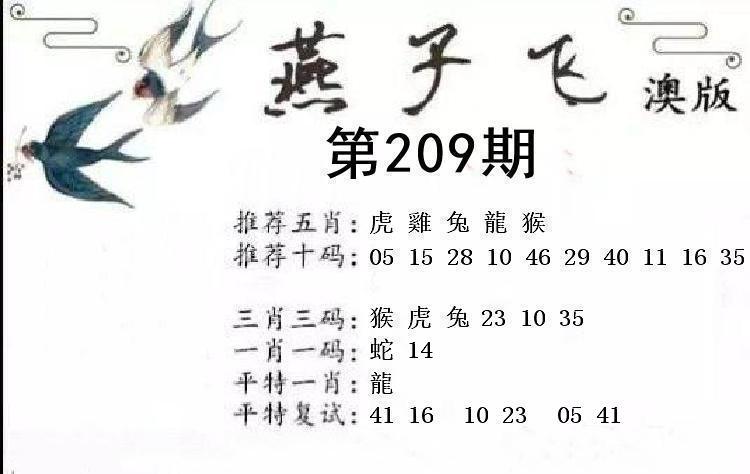 燕子飞 澳版
第209期
推荐五肖：虎 雞 兔 龍 猴
推荐十码：05 15 28 10 46 29 40 11 16 35
三肖三码：猴 虎 兔 23 10 35
一肖一码：蛇 14
平特一肖：龍
平特复试：41 16 10 23 05 41